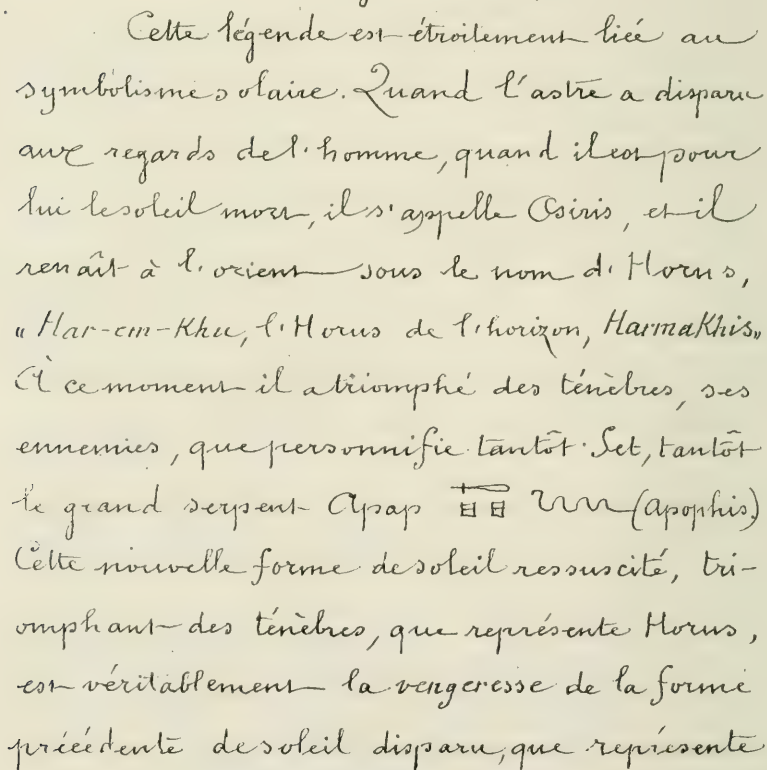 Cette légende est étroitement liée au
symbolisme solaire. Quand l'astre a disparu
aux regards de l'homme, quand il est pour
lui le soleil mort, il s'appelle Osiris, et il
renaît à l'orient sous le nom d'Horus,
"Har-em-Khu, l'Horus de l'horizon, HarmaKhis"
À ce moment il a triomphé des ténèbres, ses
ennemies, que personnifie tantôt Set, tantôt
le grand serpent Apap (Apophis)
Cette nouvelle forme de soleil ressuscité, tri-
omphant des ténèbres, que représente Horus,
est véritablement la vengeresse de la forme
précédente de soleil disparu, que représente